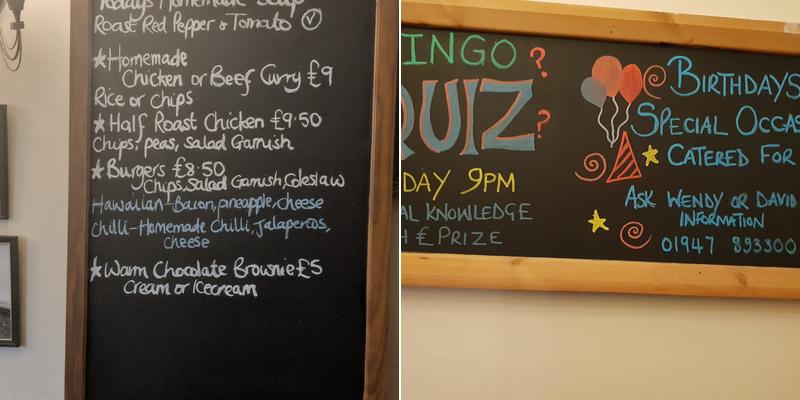 Todays Homemade Soup
Roast Red Pepper & Tomato V
★Homemade
Chicken or Beef Curry £9
Rice or chips
★Half Roast Chicken £9.50
Chips, peas, salad Garnish
★Burgers £8.50
Chips, Salad Garnish, Coleslaw
Hawaiian-Bacon, pineapple, cheese
Chilli-Homemade Chilli, Jalapenos,
cheese
★Warm Chocolate Brownie £5
Cream or Icecream
INGO ?
QUIZ ?
DAY 9PM
AL KNOWLEDGE
H £ PRIZE
BIRTHDAYS
SPECIAL OCCAS
CATERED FOR
ASK WENDY OR DAVID
INFORMATION
01947 893300